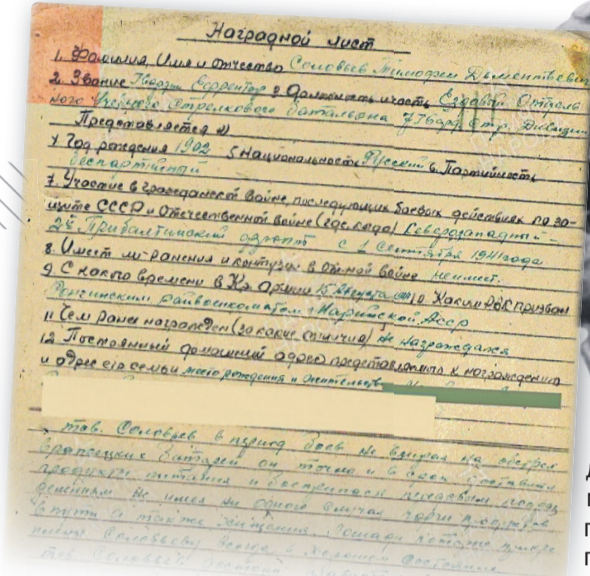 Наградной лист
1. Фамилия, Имя и отчество Соловьев Тимофей Дементьевич
2. Звание Гвардии Ефрейтор 3 Должность и часть Ездовой Отдель
ного Учебного Стрелкового батальона 7 Гвард. стр. Дивизии
Представляется к
4 Год рождения 1902 5 Национальность Русский 6. Партийность
беспартийный
7. Участие в гражданской войне, последующих боевых действиях по за-
щите СССР и Отечественной войне (где, когда) Северозападный-
2й Прибалтийский фронт с 1 Сентября 1941 года
8. Имеет ли ранения и контузии в Отечной войне не имеет.
9 С какого времени в Кр. Армии 15 Августа 10. Каким РВК призван
райвоенкоматом Марийской Асср
11 Чем ранее награжден (за какие отличия) не награждался
12. Постоянный домашний адрес представляемого к награждению
и адрес его семьи место рождения и жительства
тов. Соловьев в период боев не взирая на обстрел
вражеских батарей он точно и в срок доставлял
продукты питания и боеприпасы стрелковым подраз
делениям не имея ни одного случая порчи продуктов
в пути а также хищения. Лошади которые
Соловьеву всегда в хорошем состоянии
тов Соловьев достоин